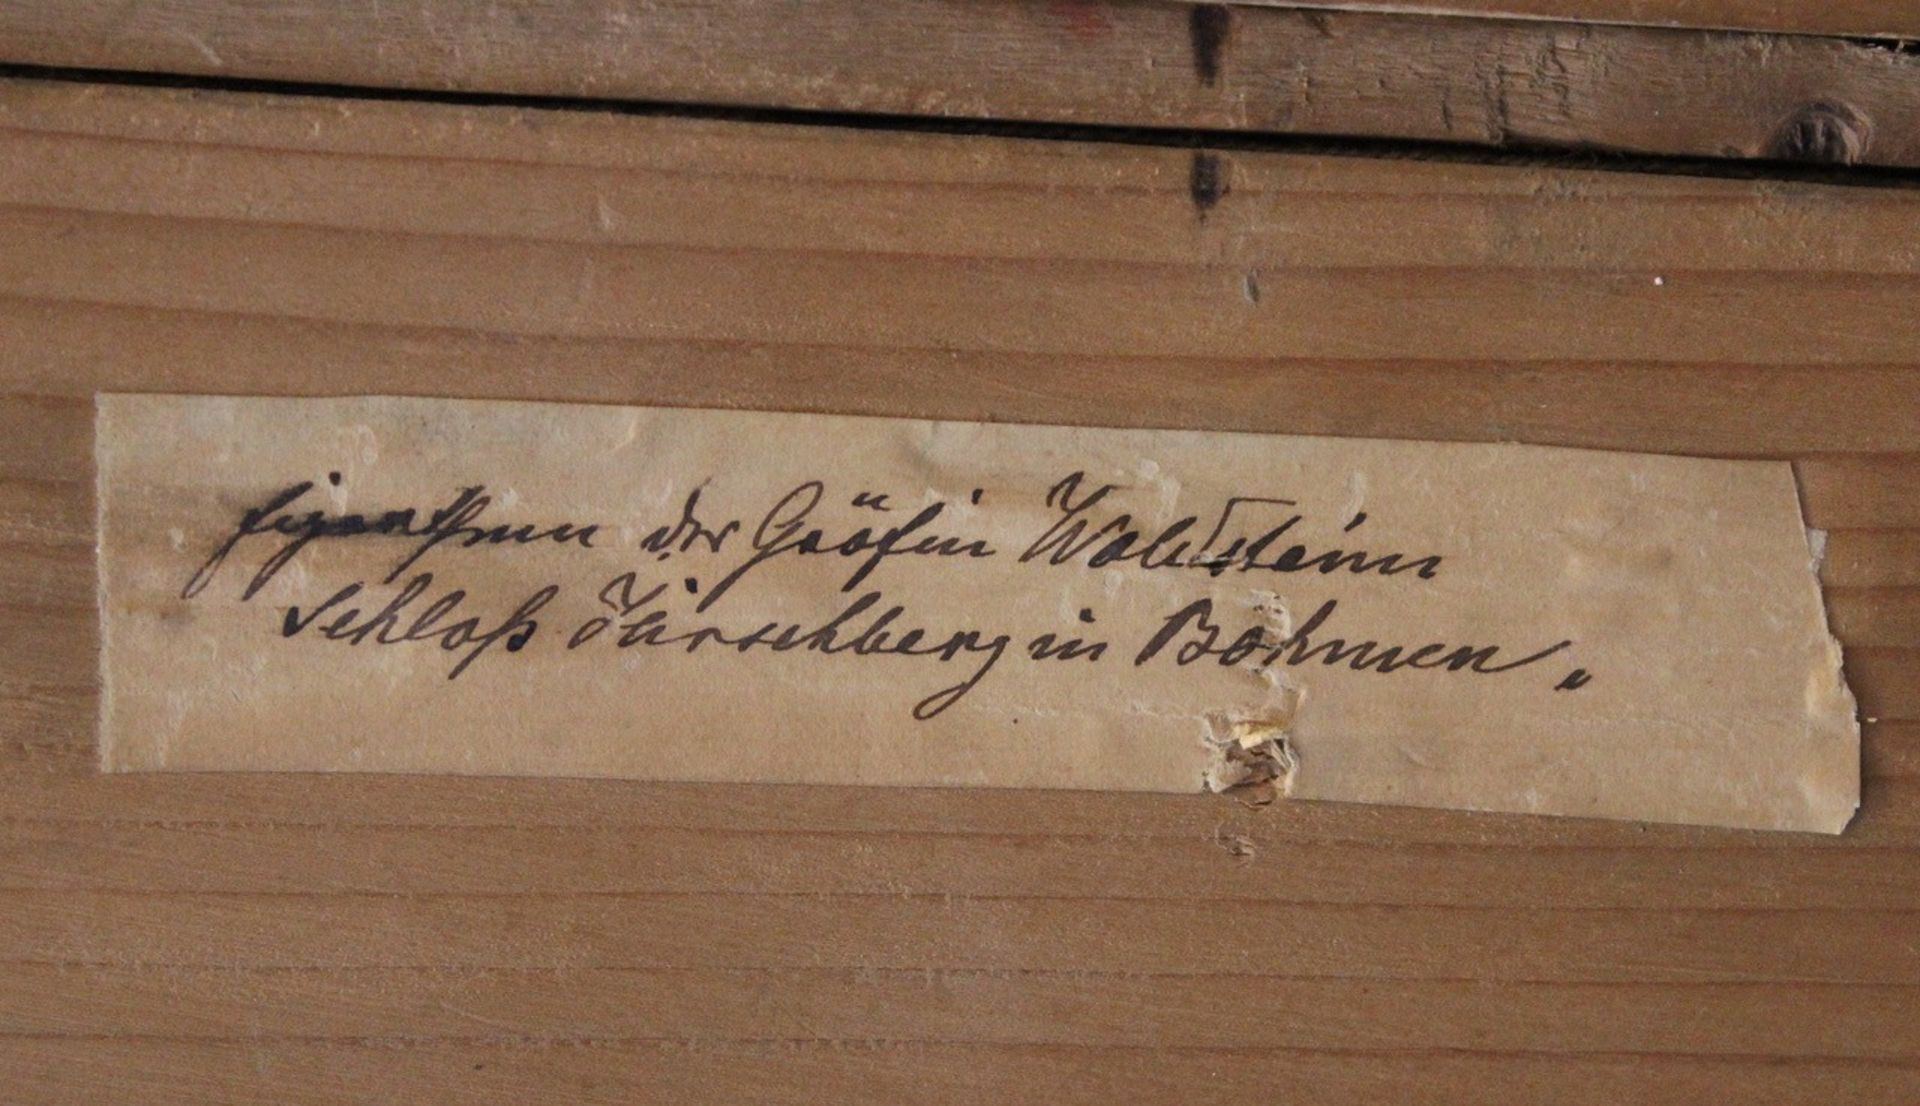 Eigenthum der Gräfin Waldstein
Schloß Hirschberg in Böhmen.